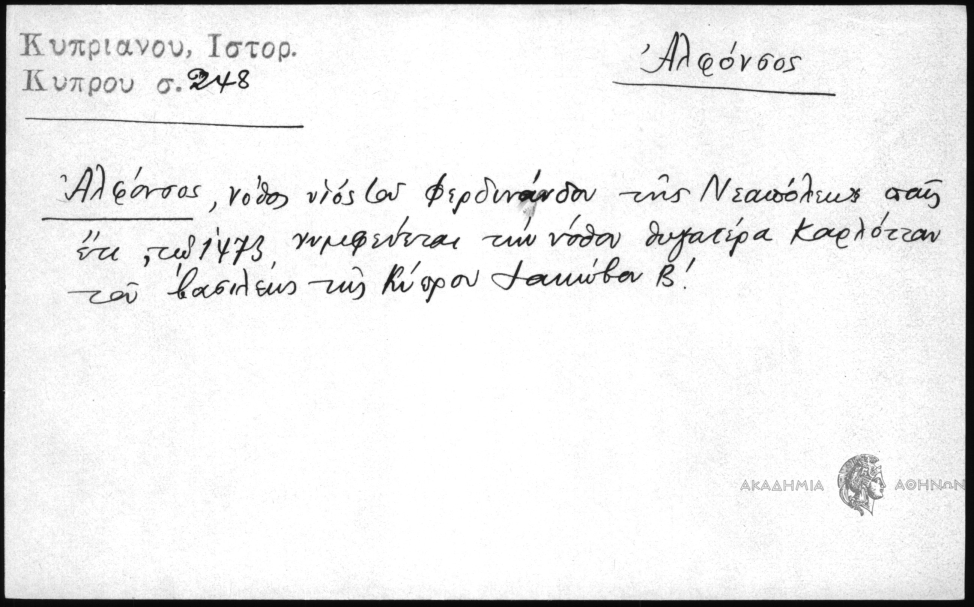 Κυπριανου, Ιστορ.
Κυπρου σ. 248
Ἀλφόνσος
Ἀλφόνσος, νόθος υἱός τοῦ Φερδινάνδου τῆς Νεαπόλεως παῖς
ἔτι, τῷ 1473, νυμφεύεται τὴν νόθον θυγατέρα Καρλότταν
τοῦ βασιλέως τῆς Κύπρου Ἰακώβου Β!
ΑΚΑΔΗΜΙΑ ΑΘΗΝΩΝ